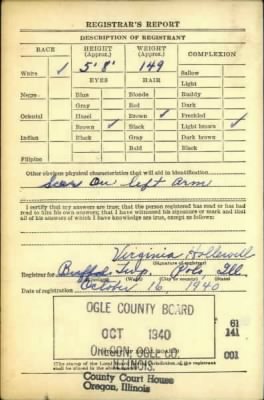 REGISTRAR'S REPORT
DESCRIPTION OF REGISTRANT
RACE HEIGHT (Approx.) WEIGHT (Approx.) COMPLEXION
White ✓ 5' 8" 149 Sallow
EYES HAIR Light
Negro Blue Blonde Ruddy
Gray Red Dark
Oriental Hazel Brown ✓ Freckled
Brown ✓ Black Light brown ✓
Indian Black Gray Dark brown
Bald Black
Filipino
Other obvious physical characteristics that will aid in identification
Scar On left arm
I certify that my answers are true; that the person registered has read or has had
read to him his own answers; that I have witnessed his signature or mark and that
all of his answers of which I have knowledge are true, except as follows:
Virginia
(Signature of registrar)
Registrar for Buffalo Twp. Polo, Ill.
Date of registration October 16, 1940
OGLE COUNTY BOARD
61
OCT 1940
141
OREGON, OGLE CO.
001
ILLINOIS.
(The stamp of the Local
shall be placed in the above space.)
County Court House
Oregon, Illinois